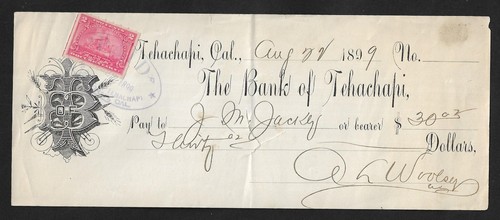 Tehachapi, Cal., Aug 22 1899 No.
The Bank of Tehachapi,
Pay to J M Jackey or bearer $ 30.05
Thirty 05 Dollars.
A L Woolsey